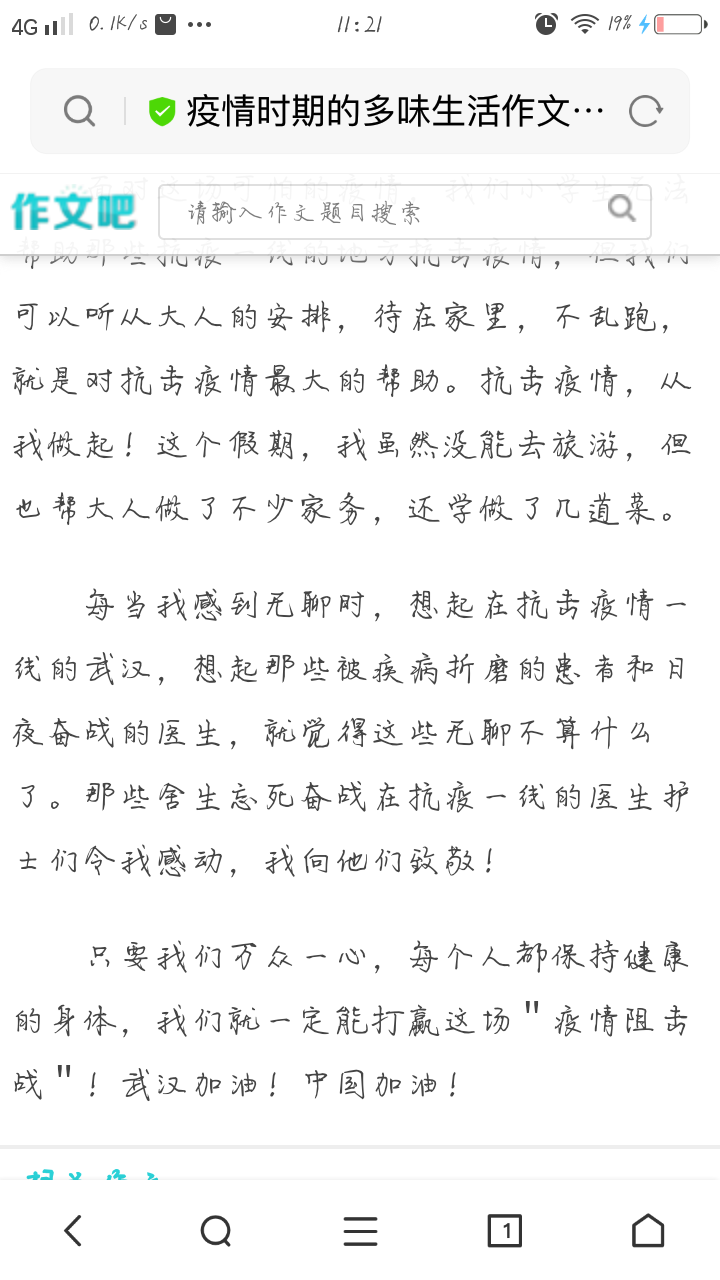 4G 0.1K/s 11:21 19%
疫情时期的多味生活作文…
面对这场可怕的疫情，我们小学生无法
作文吧 请输入作文题目搜索
帮助那些抗疫一线的地方抗击疫情，但我们
可以听从大人的安排，待在家里，不乱跑，
就是对抗击疫情最大的帮助。抗击疫情，从
我做起！这个假期，我虽然没能去旅游，但
也帮大人做了不少家务，还学做了几道菜。
每当我感到无聊时，想起在抗击疫情一
线的武汉，想起那些被疾病折磨的患者和日
夜奋战的医生，就觉得这些无聊不算什么
了。那些舍生忘死奋战在抗疫一线的医生护
士们令我感动，我向他们致敬！
只要我们万众一心，每个人都保持健康
的身体，我们就一定能打赢这场"疫情阻击
战"！武汉加油！中国加油！
1